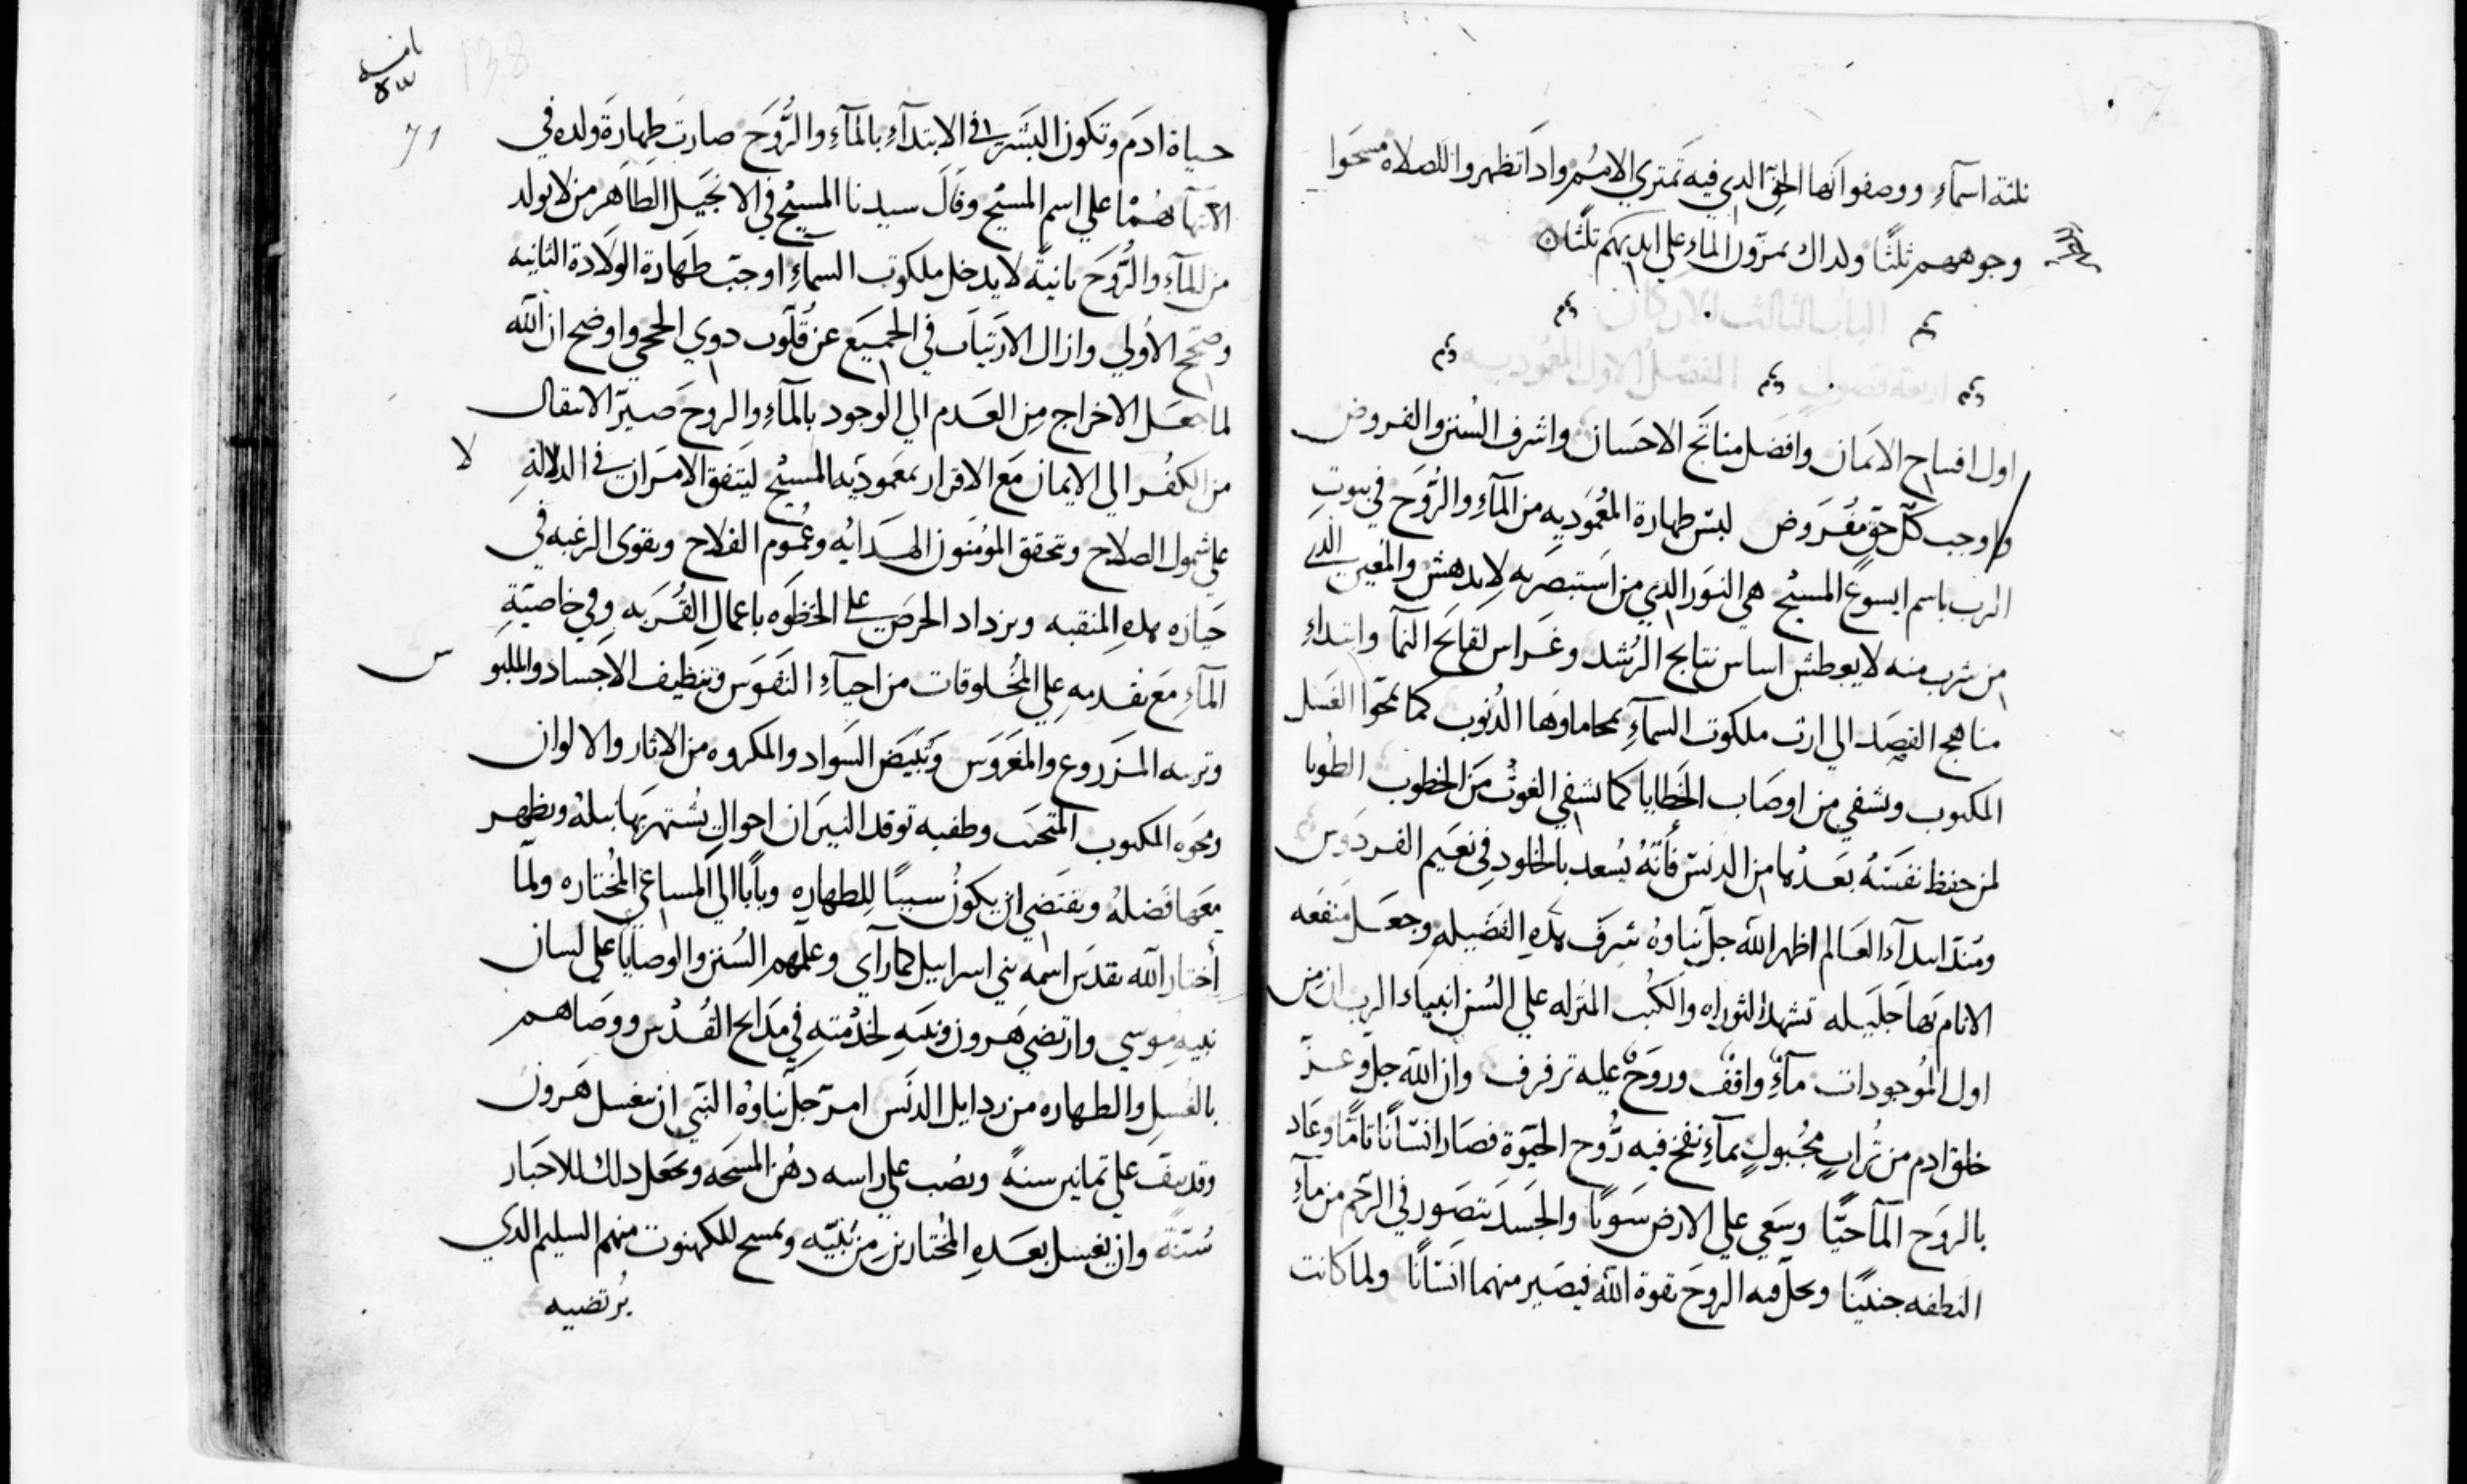 ثلثة اسمآءِ ووصفوا انها الحق الدي فيه تمتري الامم واداتظهروا للصلاة مسحوا
وجوههم ثلثًا ولداك يمرّون المآء علي ايديكم ثلثًا
الباب الثالث الاركان
اربعة فصول الفصل الاول المعموديه
اول افتتاح الايمان وافضل مناتج الاحسان واشرف السنن والفروض
واوجب كلّ حقٍ مفروض لبس طهارة المعموديه من المآءِ والروح في بيوتِ
الرب باسم ايسوع المسيح هي النور الدي من استبصر به لا يدهش والمعين الذي
من شرب منه لا يعطش اساس نتايج الرشد وغراس لقايح النمآ وابتداءِ
مناهج القصد الي ارث ملكوت السمآءِ يمحا ماوها الدنوب كما يمحوا الغسل
المكتوب ويشفي من اوصاب الخطايا كما يشفي الغوث من الخطوب الطوبا
لمن حفظ نفسَهُ بعدها من الدنس فأنهُ يُسعد بالخلودِ في نعيم الفردوس
ومند ابتدآء العالم اظهر الله جل ثناوهُ شرف هدهِ الفضيله وجعل منفعه
الانام بها جليله تشهد التوراه والكتب المنزله علي السُن انبياء الرب ان من
اول الموجودات مآءٌ واقفٌ وروحٌ عليه ترفرف وان الله جل وعزّ
خلق ادم من تُرابٍ مجبولٍ بمآءٍ نفخ فيه رُوح الحيوة فصار انسانًا تامًا وعاد
بالروح المآ حيًّا وسعي علي الارض سويًا والجسد يتصور في الرحم من مآءِ
النطفه جنينًا ويحل فيه الروح بقوة الله فيصير منهما انسانًا ولما كانت
138
71
حياة ادم وتكون البشر في الابتدآءِ بالمآءِ والرُّوح صارت طهارة ولده في
الانتهآ بهما علي اسم المسيح وقال سيدنا المسيح في الانجيل الطاهر من لا يولد
من المآءِ والرُّوح ثانيةً لا يدخل ملكوت السمآءِ اوجب طهارة الولادة الثانيه
وصحّح الاُولي وازال الارتياب في الجميع عن قلوب دوي الحجي واوضح ان الله
لما جعل الاخراج من العدم الي الوجود بالمآءِ والروح صيّر الانتقال
من الكفر الي الايمان مع الاقرار بمعموديه المسيح ليتفق الامران في الدلالةِ
علي شمول الصلاح وتحقق المؤمنون الهدايه وعُموم الفلاح وتقوى الرغبه في
حيازه هدهِ المنقبه ويزداد الحرص علي الحظوه باعمال القُربَه وفي خاصيّةِ
المآءِ مع تقدمهِ علي المخلوقات من احيآءِ النفوس وتنظيف الاجساد والملبو
س
وتربيه المزروع والمغروس وتبيّض السواد والمكروه من الاثار والالوان
ومحوه المكتوب وطفيه توقد النيران احوالٍ يشتهر بها نبلهُ ويظهر
معها فضلهُ ويقتضي ان يكونُ سببًا للطهاره وبابًا الي المساعي المُختاره ولمّا
اختار الله تقدس اسمه بني اسراييل كما رآي وعلّمهم السُنن والوصايا علي لسان
نبيهِ موسي وارتضي هرون وبنيه لخدمتهِ في مدابح القُدس ووصاهم
بالغسلِ والطهاره من ردايل الدنس امر جل ثناوهُ النبي ان يغسل هرون
وقد نيف علي ثمانين سنةً ويصب علي راسه دهن المسحه ويجعل دلك للاحبار
سُنّةً وان يغسل بعدهِ المختارين من بنيّه ويمسح للكهنوت منهم السليم الدي
يُرتضيه